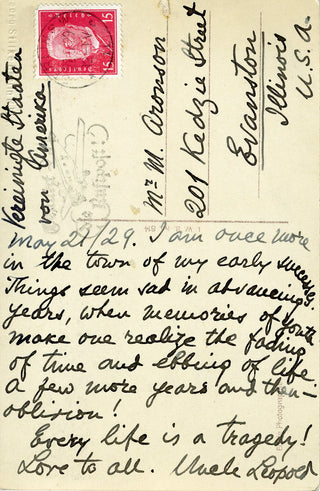 Mr. M. Aronson
201 Kedzie Street
Evanston
Illinois
U.S.A.
Vereinigte Staaten
von Amerika
15 15
Deutsches
May 21/29. I am once more
in the town of my early successes.
Things seem sad in advancing
years, when memories of youth
make one realize the fading
of time and ebbing of life.
A few more years and then—
oblivion!
Every life is a tragedy!
Love to all. Uncle Leopold